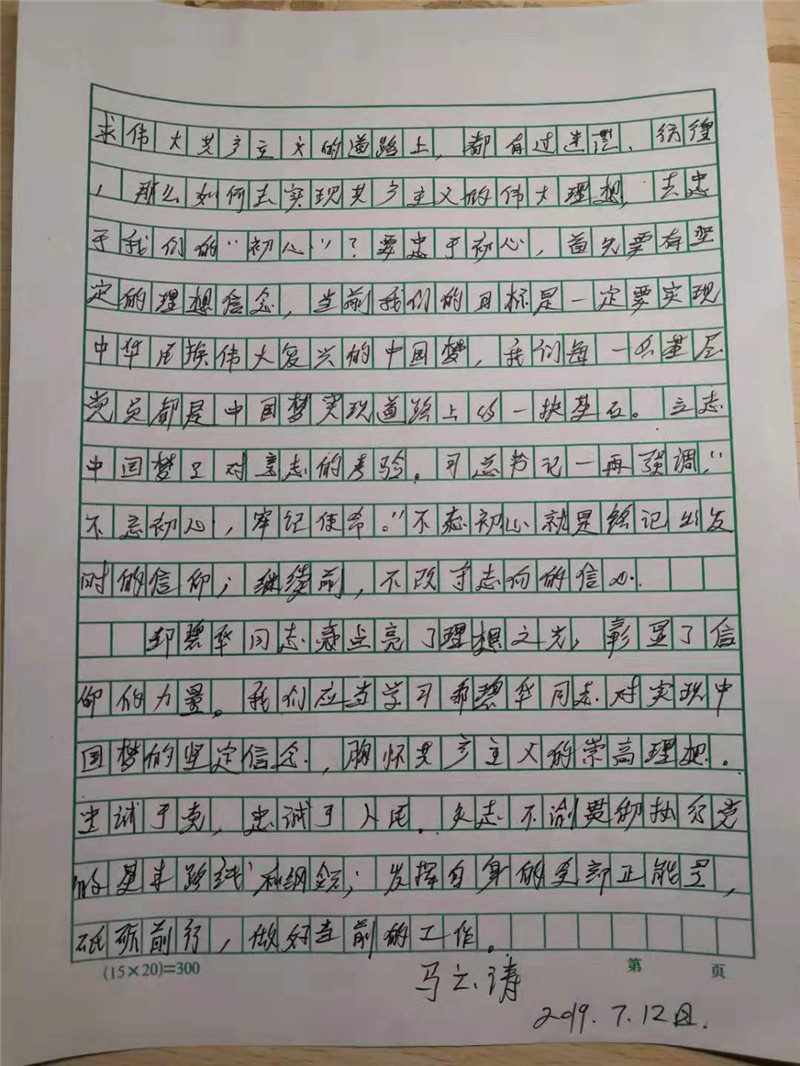 求伟大共产主义的道路上，都有过迷茫、彷徨
，那么如何去实现共产主义的伟大理想，去忠
于我们的“初心”？要忠于初心，首先要有坚
定的理想信念，当前我们的目标是一定要实现
中华民族伟大复兴的中国梦，我们每一名基层
党员都是中国梦实现道路上的一块基石。立志
中国梦是对意志的考验。习总书记一再强调，“
不忘初心，牢记使命。”不忘初心就是铭记出发
时的信仰；继续前，不改于志向的信心.
邹碧华同志点亮了理想之光，彰显了信
仰的力量。我们应当学习邹碧华同志对实现中
国梦的坚定信念，胸怀共产主义的崇高理想。
忠诚于党，忠诚于人民。矢志不渝贯彻执行党
的基本路线和纲领；发挥自身的全部正能量，
砥砺前行，做好当前的工作。
(15×20)=300
第 页
马云涛
2019.7.12日.